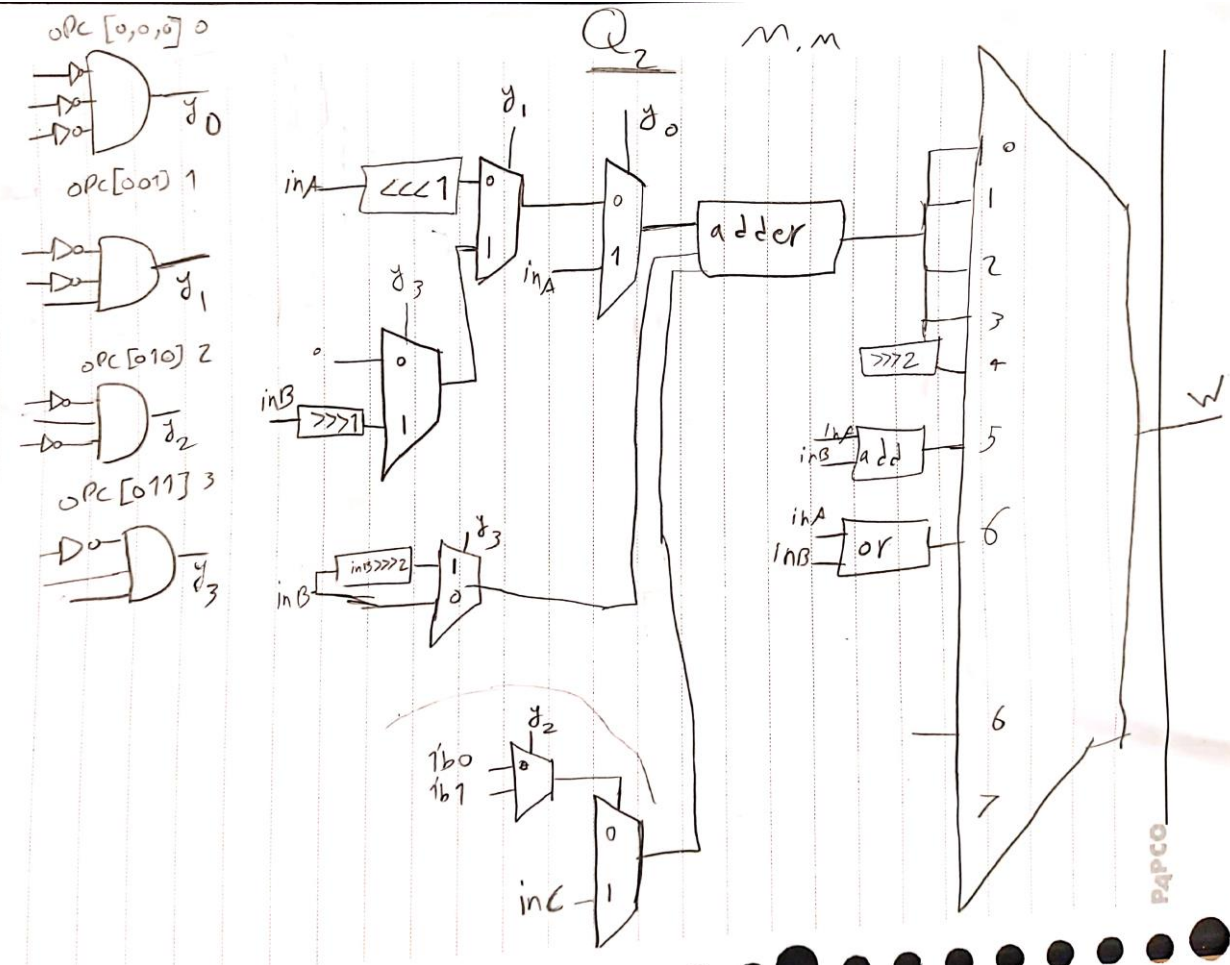 Q2
M.M
OPC [0,0,0] 0
y0
OPC[001] 1
y1
OPC[010] 2
y2
OPC[011] 3
y3
y1
y0
inA
<<<1
0
1
0
1
inA
adder
y3
0
0
inB
>>>1
1
inB
inB>>>2
y3
1
0
y2
1'b0
1'b1
0
0
1
inC
0
1
2
3
>>>2
4
inA
inB
add
5
inA
inB
or
6
6
7
W
PAPCO